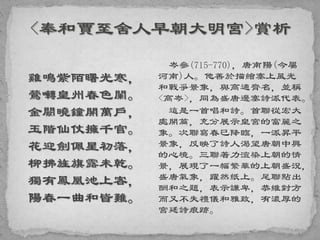 <奉和賈至舍人早朝大明宮>賞析
雞鳴紫陌曙光寒，
鶯囀皇州春色闌。
金闕曉鐘開萬戶，
玉階仙仗擁千官。
花迎劍佩星初落，
柳拂旌旗露未乾。
獨有鳳凰池上客，
陽春一曲和皆難。
岑參(715-770)，唐南陽(今屬
河南)人。他善於描繪塞上風光
和戰爭景象，與高適齊名，並稱
<高岑>，同為盛唐邊塞詩派代表。
這是一首唱和詩。首聯從宏大
處開篇，充分展示皇宮的富麗之
象。次聯寫春已降臨，一派昇平
景象，反映了詩人渴望唐朝中興
的心境。三聯著力渲染上朝的情
景，展現了一幅繁華的上朝盛況，
盛唐氣象，躍然紙上。尾聯點出
酬和之題，表示謙卑，恭維對方
而又不失禮儀和雅致，有濃厚的
宮廷詩痕跡。